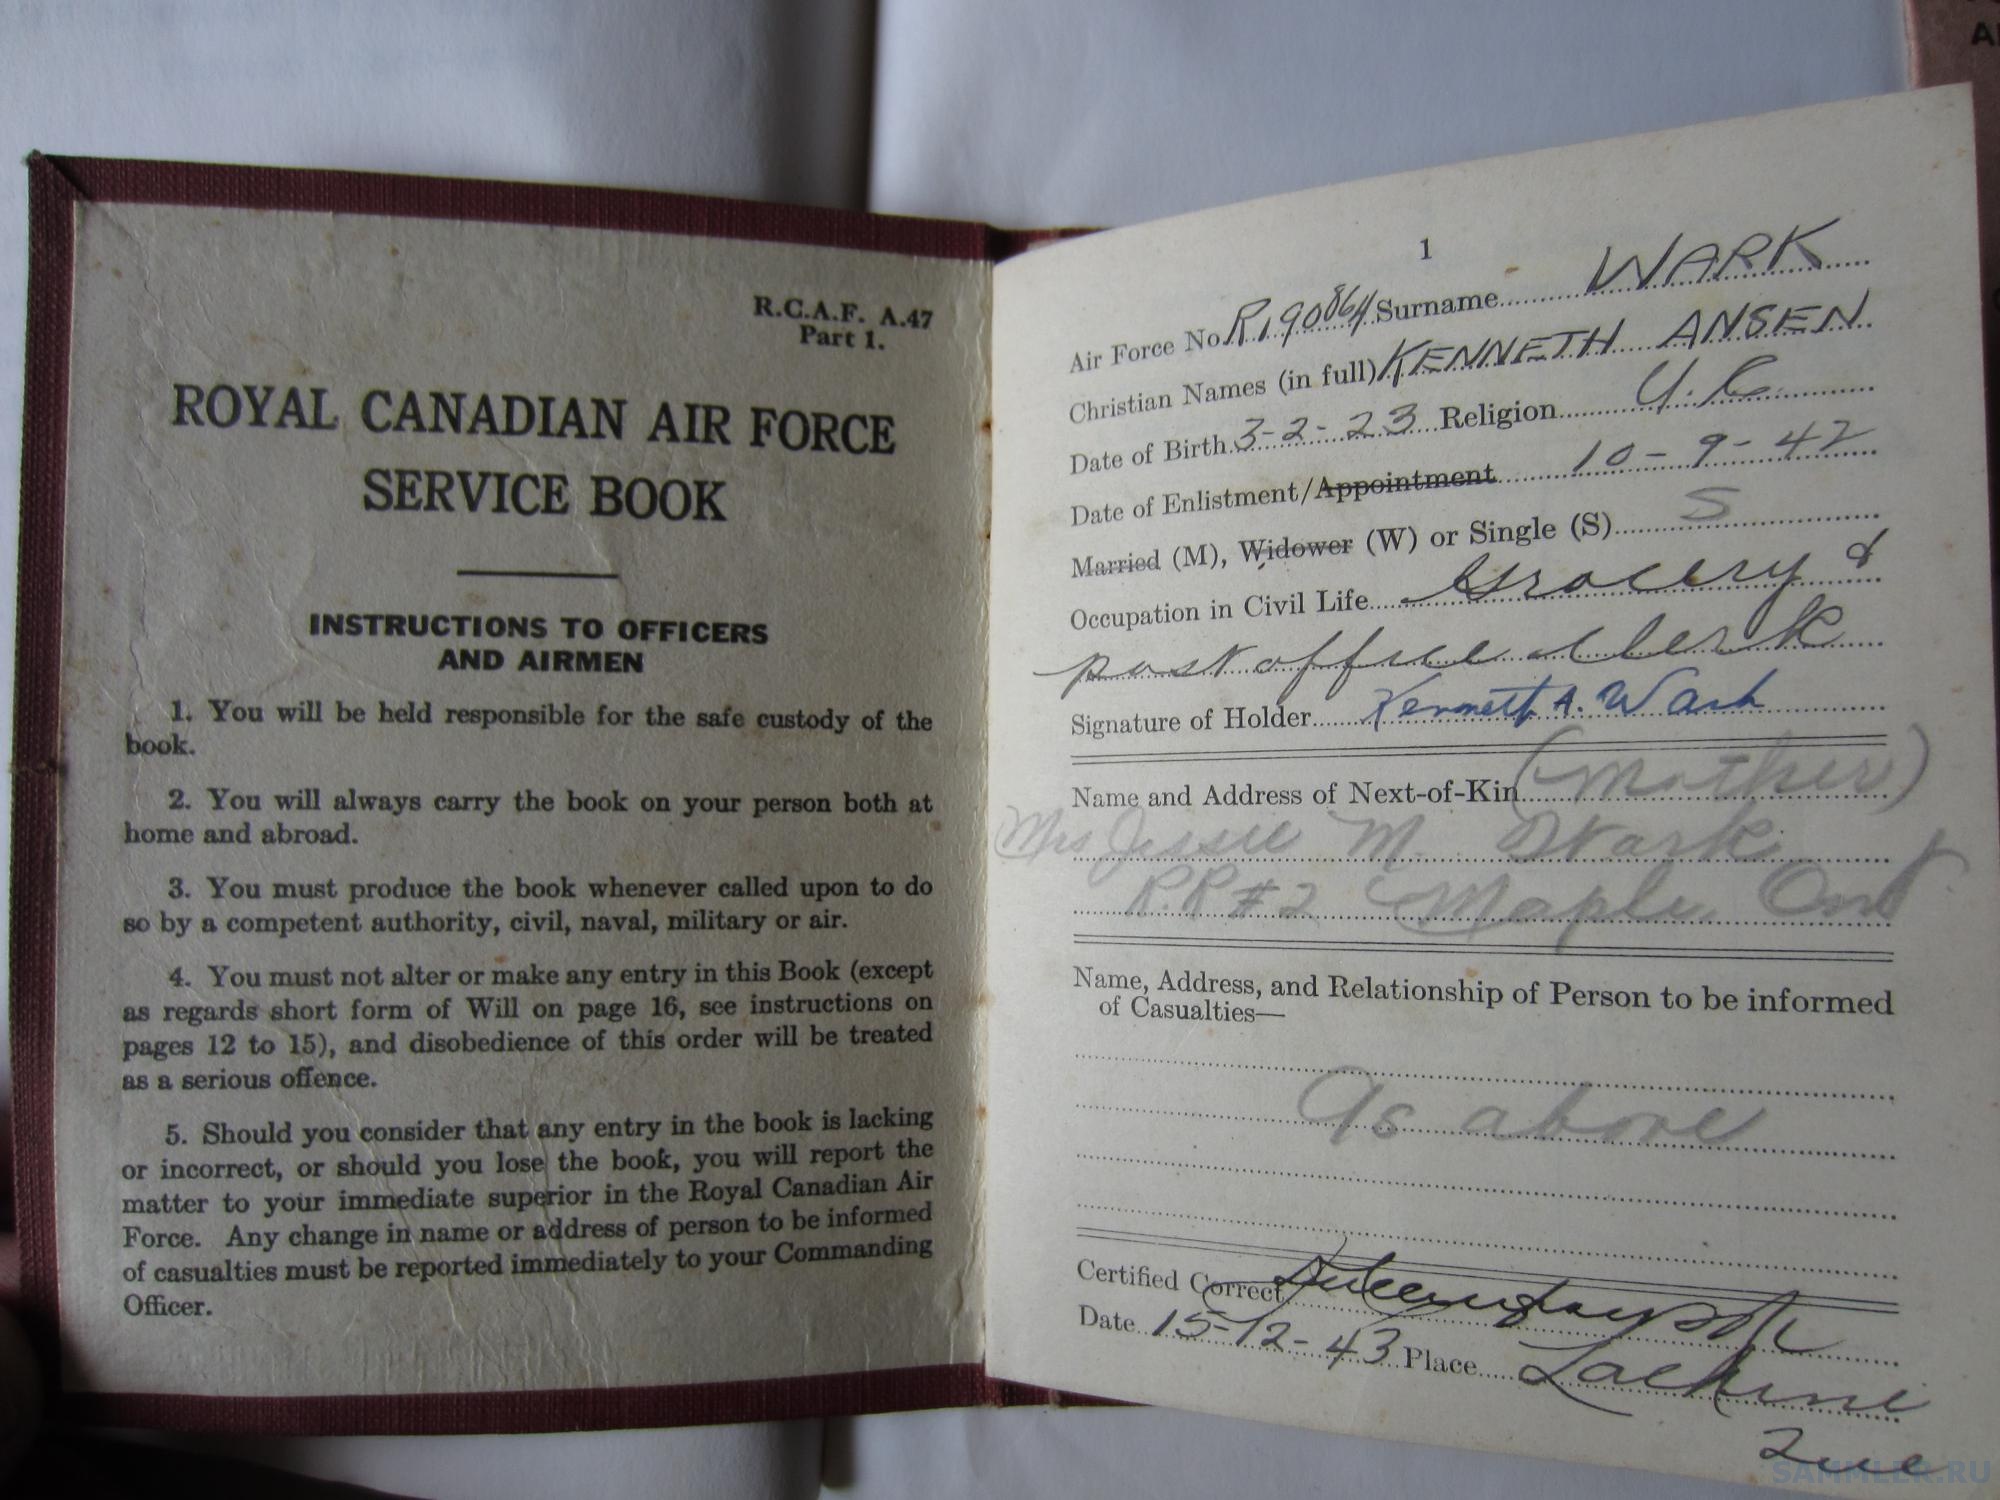 R.C.A.F. A.47
Part 1.
ROYAL CANADIAN AIR FORCE
SERVICE BOOK
INSTRUCTIONS TO OFFICERS
AND AIRMEN
1. You will be held responsible for the safe custody of the
book.
2. You will always carry the book on your person both at
home and abroad.
3. You must produce the book whenever called upon to do
so by a competent authority, civil, naval, military or air.
4. You must not alter or make any entry in this Book (except
as regards short form of Will on page 16, see instructions on
pages 12 to 15), and disobedience of this order will be treated
as a serious offence.
5. Should you consider that any entry in the book is lacking
or incorrect, or should you lose the book, you will report the
matter to your immediate superior in the Royal Canadian Air
Force. Any change in name or address of person to be informed
of casualties must be reported immediately to your Commanding
Officer.
1
Air Force No. R190864 Surname WARK
Christian Names (in full) KENNETH ANSEN
Date of Birth 3-2-23 Religion U.C.
Date of Enlistment/Appointment 10-9-42
Married (M), Widower (W) or Single (S) S
Occupation in Civil Life Grocery &
post office clerk
Signature of Holder Kenneth A. Wark
Name and Address of Next-of-Kin (Mother)
Mrs Jessie M. Wark
R.R #2 Maple Ont.
Name, Address, and Relationship of Person to be informed
of Casualties—
As above
Certified Correct
Date 15-12-43 Place Lachine
Que
SAMMLER.RU